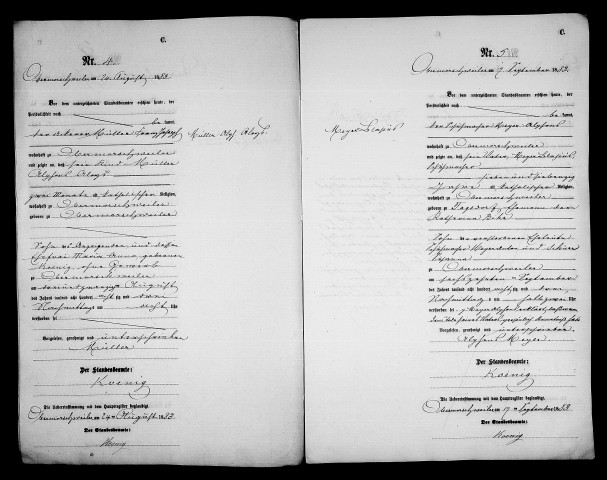 C.
Nr. 4
Obermorschweiler am 24 August 1883
Vor dem unterzeichneten Standesbeamten erschien heute, der
Persönlichkeit nach
be kannt,
der Ackerer Müller Franz Joseph
Müller Alph Aloys
wohnhaft zu Obermorschweiler
und zeigte an, daß sein Kind Müller
Alphons Aloys
zwei Monate alt, katholischer Religion,
wohnhaft zu Obermorschweiler
geboren zu Obermorschweiler
Sohn des Anzeigenden und dessen
Ehefrau Maria Anna geborener
Koenig, ohne Gewerbe
zu Obermorschweiler
am August
des Jahres tausend acht hundert achtzig und drei
Nachmittags um acht Uhr
verstorben sei
Vorgelesen, genehmigt und unterschrieben
Müller
Der Standesbeamte:
Koenig
Die Uebereinstimmung mit dem Hauptregister beglaubigt.
Obermorschweiler am 24 ten August 1883
Der Standesbeamte:
Koenig
C.
Nr. 5
Obermorschweiler am 17 September 1883.
Vor dem unterzeichneten Standesbeamten erschien heute, der
Persönlichkeit nach
be kannt,
der Schuhmacher Meyer Alphons
Meyer Blasius
wohnhaft zu Obermorschweiler
und zeigte an, daß sein Vater, Meyer Blasius,
Schuhmacher
sieben und siebenzig
Jahre alt, katholischer Religion,
wohnhaft zu Obermorschweiler
geboren zu Tagsdorf, Ehemann der
Katharina
Sohn der verstorbenen Eheleute
Schuhmacher Meyer und
zu Obermorschweiler
am sechszehnten September
des Jahres tausend acht hundert achtzig und drei
Nachmittags um halb zwei Uhr
verstorben sei
Vorgelesen, genehmigt und unterschrieben
Alphons Meyer
Der Standesbeamte:
Koenig
Die Uebereinstimmung mit dem Hauptregister beglaubigt.
Obermorschweiler am 17 ten September 1883
Der Standesbeamte:
Koenig